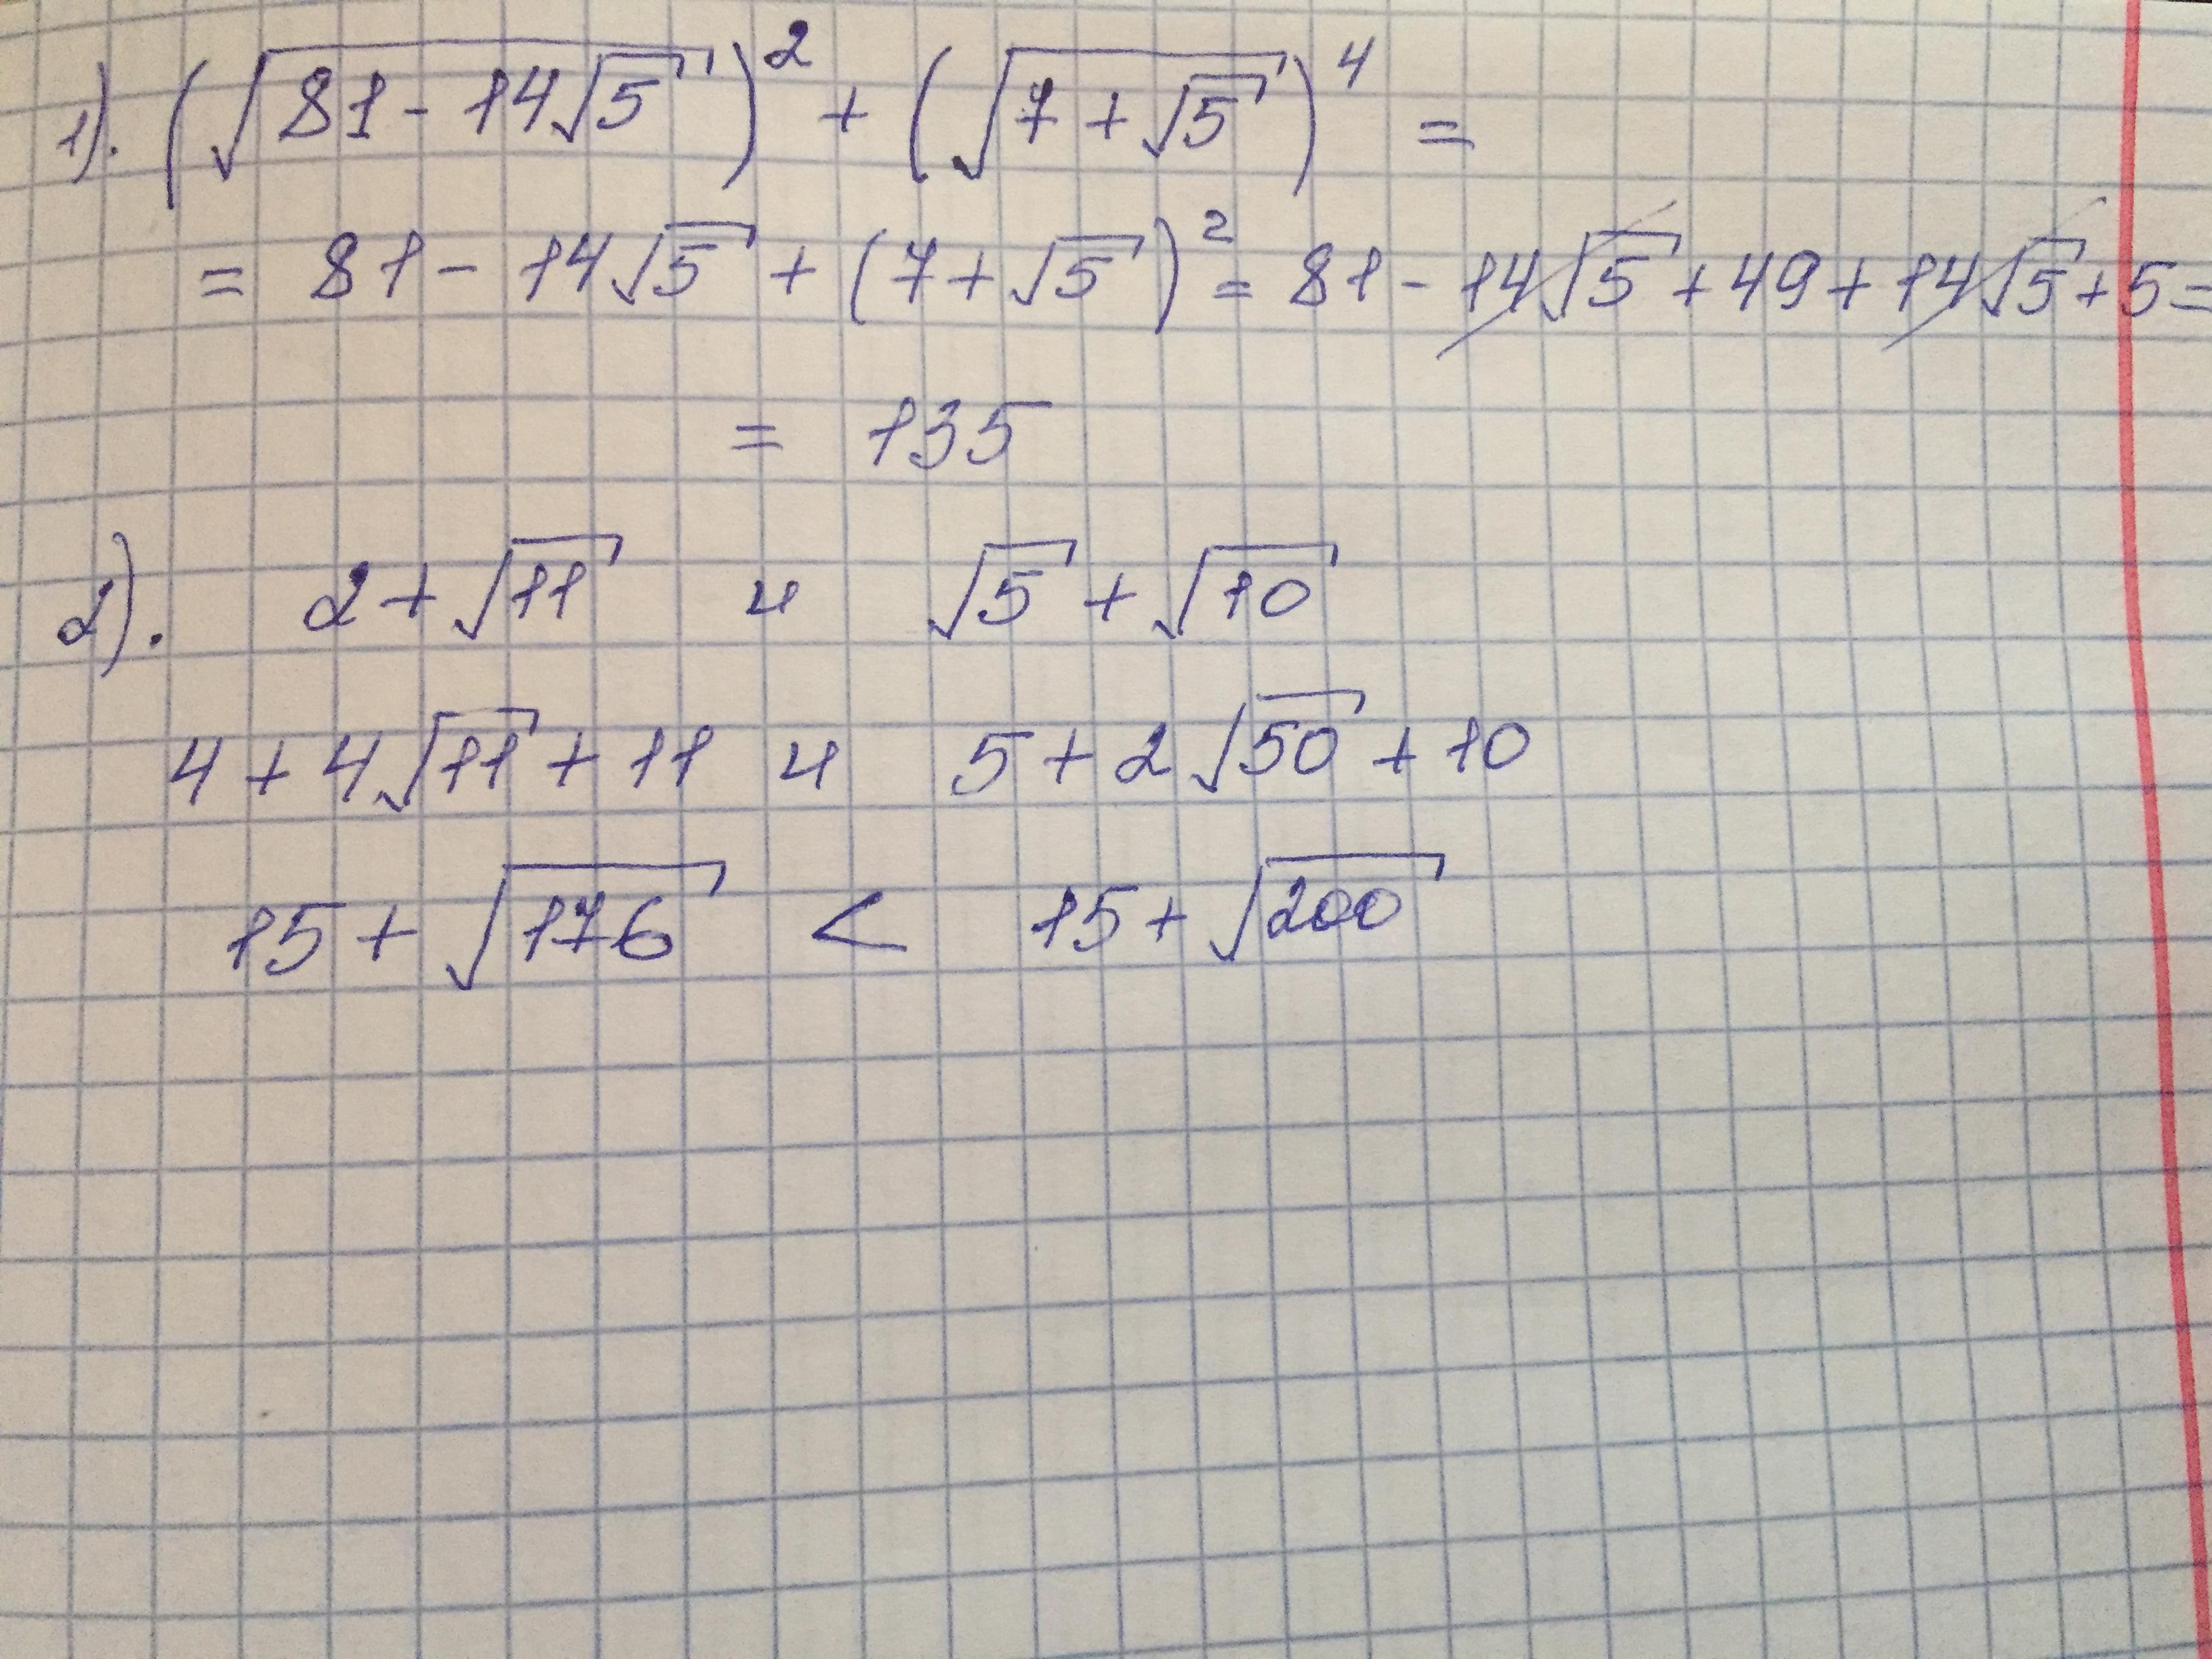 1). (√(81 - 14√5))² + (√(7 + √5))⁴ =
= 81 - 14√5 + (7 + √5)² = 81 - 14√5 + 49 + 14√5 + 5 =
= 135
2). 2 + √11 и √5 + √10
4 + 4√11 + 11 и 5 + 2√50 + 10
15 + √176 < 15 + √200